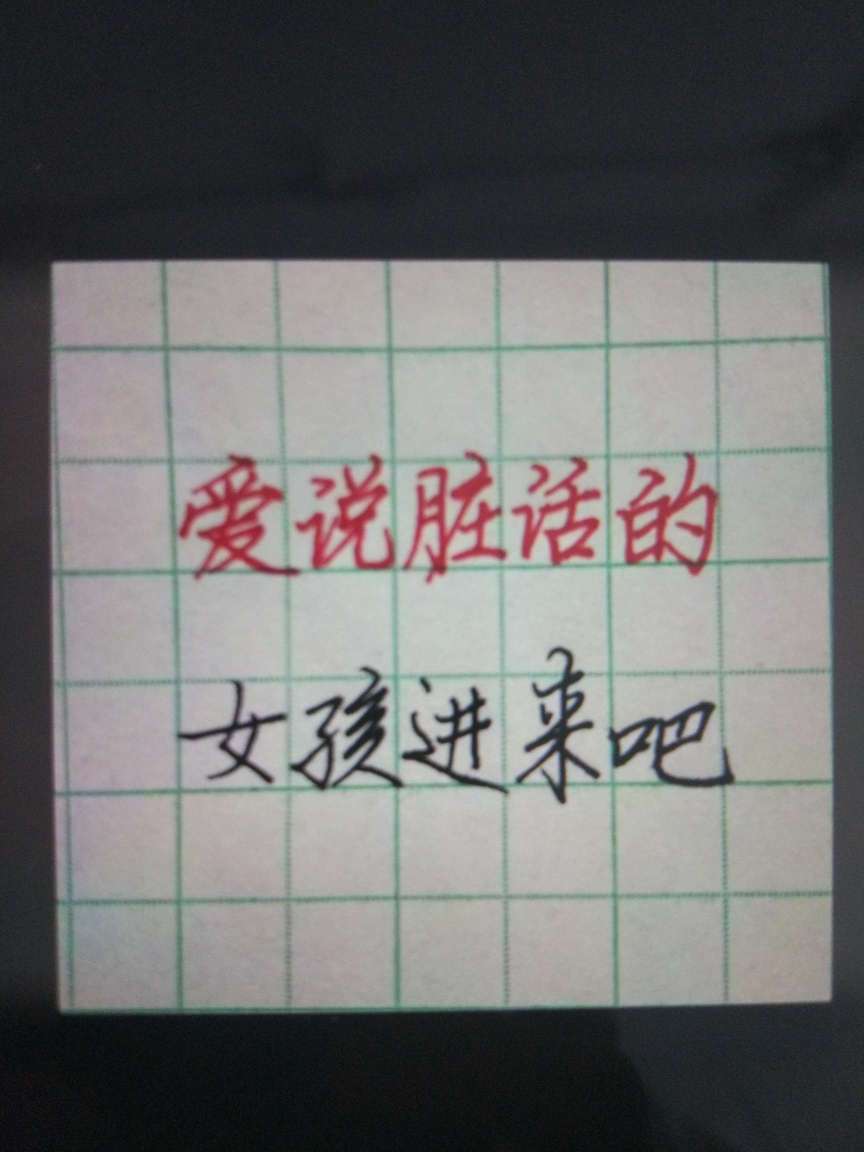 爱说脏话的
女孩进来吧